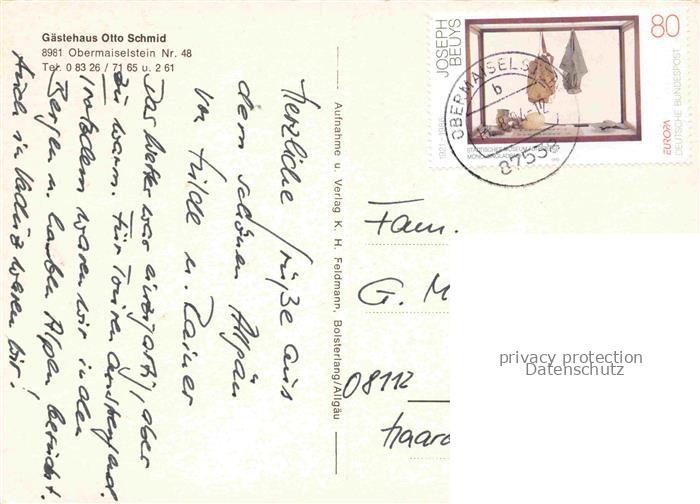 Gästehaus Otto Schmid
8981 Obermaiselstein Nr. 48
Tel. 0 83 26 / 71 65 u. 2 61
Herzliche Grüße aus
dem schönen Allgäu
von Hilde u. Rainer
Das Wetter war einzigartig, aber
zu warm. Für Touren anstrengend.
Trotzdem waren wir in den
Bergen u. haben Alpen besucht.
Auch in Vaduz waren wir!
Aufnahme u. Verlag K. H. Feldmann, Bolsterlang/Allgäu
JOSEPH
BEUYS
80
1921-1986
EUROPA
DEUTSCHE BUNDESPOST
STÄDTISCHES MUSEUM
OBERMAISELS
b
87538
Fam.
G. M
08112
Haar
privacy protection
Datenschutz